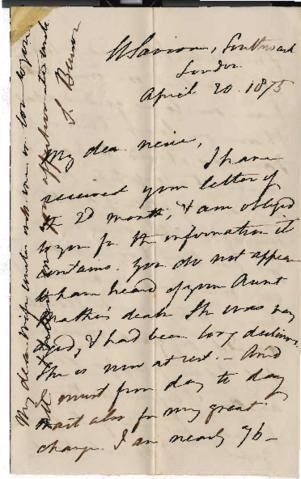 St Saviours, Southwark
London
April 20. 1875
My dear niece,
I have
received your letter of
2d month, & am obliged
to you for the information it
contains. You do not appear
to have heard of your Aunt
death. She was very
aged, & had been long declining
She is now at rest. - And
I must from day to day
wait also for my great
change. I am nearly 76 -
My dear Wife unites with me in love to you
S. Benson